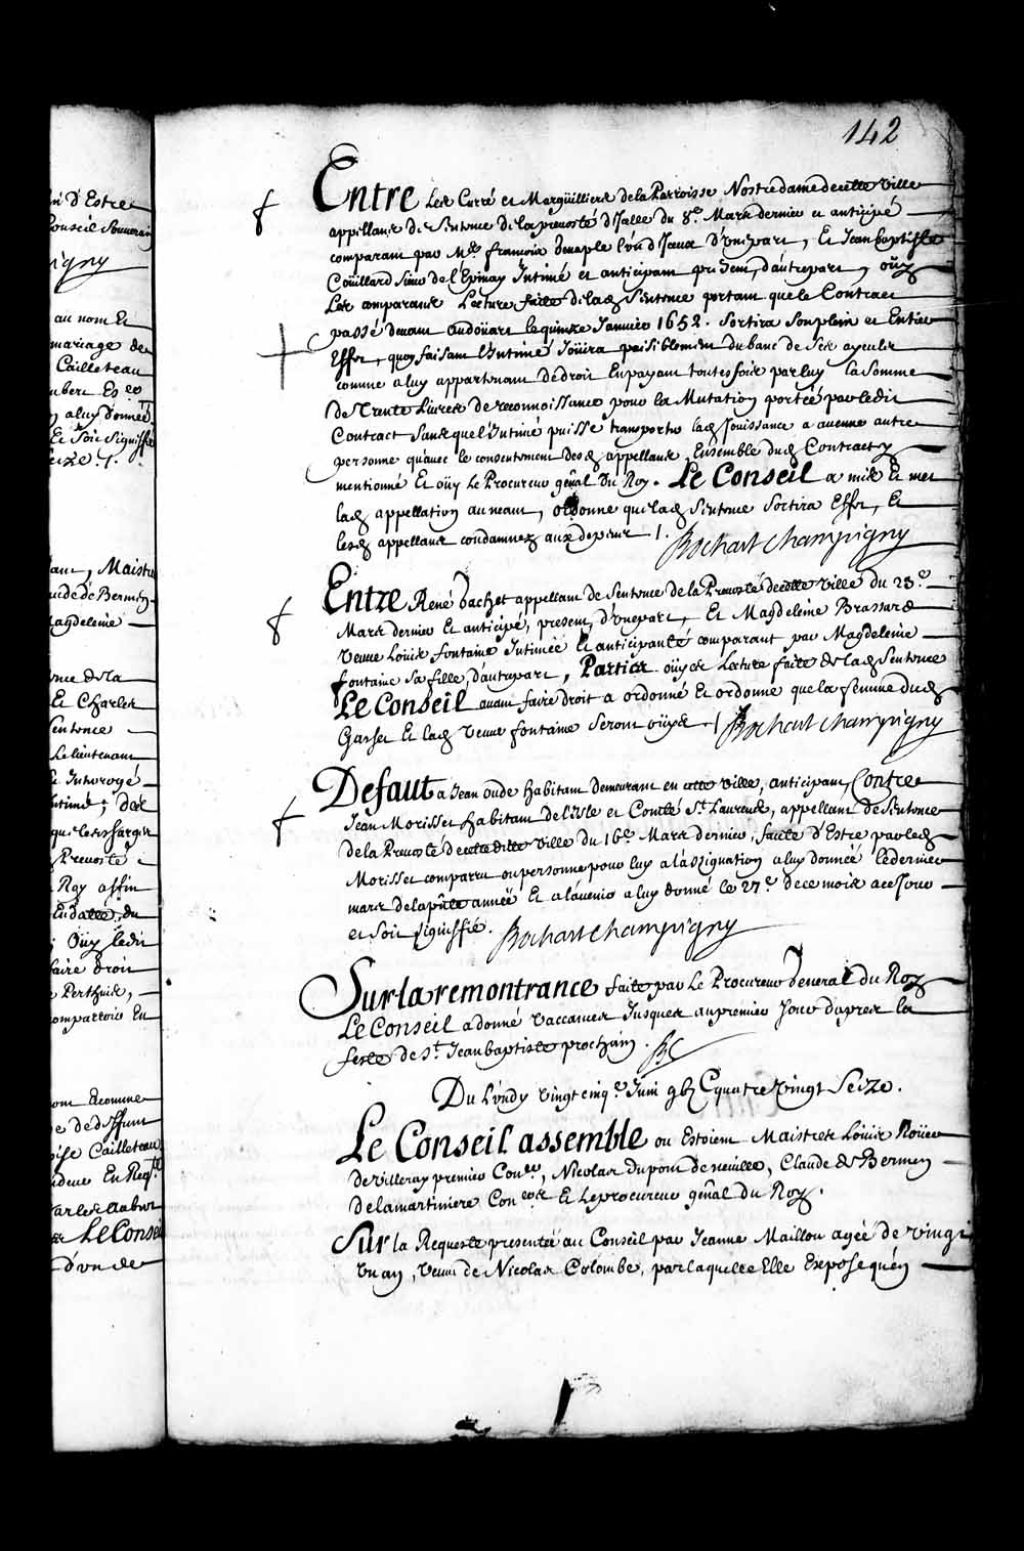 142
Entre Les Curré et Margüilliers de la Parroisse Nostredame de cette ville
appellans de Sentence de la prevosté d'Icelle du 8e. Mars dernier et anticipé
comparant par Me. francois d'une part, Et Jean baptiste
Coüillard Sieur de L'Epinay Intimé et anticipant present, d'autre part, oüy
Les comparans Lecture faite de lad Sentence portant que le Contract
passé devant Audoüart le quinze Janvier 1652. Sortira Son plein et Entier
Effet, quoy faisant L'Intimé Joüira paisiblement du banc de Ses ayeuls
comme a luy appartenant de droit En payant toutes fois par luy La Somme
de Trente Livres de reconnoissance pour la Mutation portée par ledit
Contract Sans que L'Intimé puisse transporter lad Jouissance a aucune autre
personne qu'avec le consentement desd appellans Ensemble dud Contract y
mentionné Et oüy Le Procureur gñal Du Roy. Le Conseil a mis Et met
lad appellation au neant, ordonne que lad Sentence Sortira Effet, Et
lesd appellans condamnez aux depens /.
Bochart Champigny
Entre René appellant de Sentence de la Prevosté de cette ville du 23e.
Mars dernier Et anticipé, present, d'une part, Et Magdeleine Brassard
veuve Louis fontaine Intimée Et anticipante comparant par Magdeleine
fontaine Sa fille, d'autre part, Parties oüyes Lecture faite de lad Sentence
Le Conseil avant faire droit a ordonné Et ordonne que la femme dud
Gasset Et lad veuve fontaine Seront oüyes /
Bochart Champigny
Defaut a Jean oude habitant demeurant en cette ville, anticipant, Contre
Jean Morisset habitant de l'isle et Comté St. Laurens, appellant de Sentence
de la Prevosté de cette ditte ville du 16e. Mars dernier, faute d'Estre par led
Morisset comparu ou personne pour luy a l'assignation a luy donnée le dernier
mars de la pñte année Et a l'avenir a luy donné le 27e. de ce mois a ce Jour
et Soit Signiffié.
Bochart Champigny
Sur la remontrance faite par Le Procureur General du Roy
Le Conseil a donné vaccances Jusques au premier Jour d'apres la
feste de St. Jean baptiste prochain.
BC
Du Lundy vingt cinqe. Juin gbj C quatre vingt Seize.
Le Conseil assemblé ou Estoient Maistres Loüis Roüer
de villeray premier Coner, Nicolas dupont de neuville, Claude de Bermen
de la martiniere Coners Et Le procureur gñal du Roy.
Sur la Requeste presentée au Conseil par Jeanne Maillou agée de vingt
un an, veuve de Nicolas Colombe, par laquelle Elle Expose qu'en